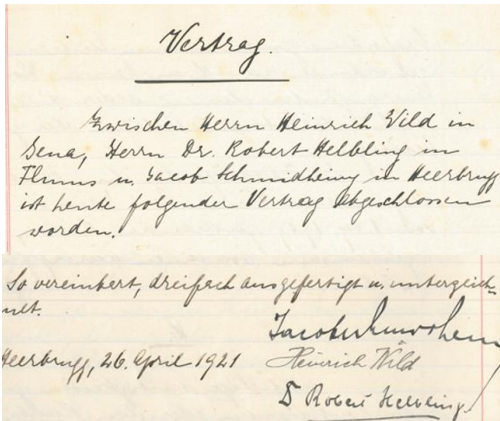 Vertrag.
Zwischen Herrn Heinrich Wild in
Jena, Herrn Dr. Robert Helbling in
Flums u. Jacob Schmidheiny in Heerbrugg
ist heute folgender Vertrag abgeschlossen
worden.
So vereinbart, dreifach ausgefertigt u. unterzeich-
net.
Jacob Schmidheiny
Heerbrugg, 26. April 1921
Heinrich Wild
Dr Robert Helbling